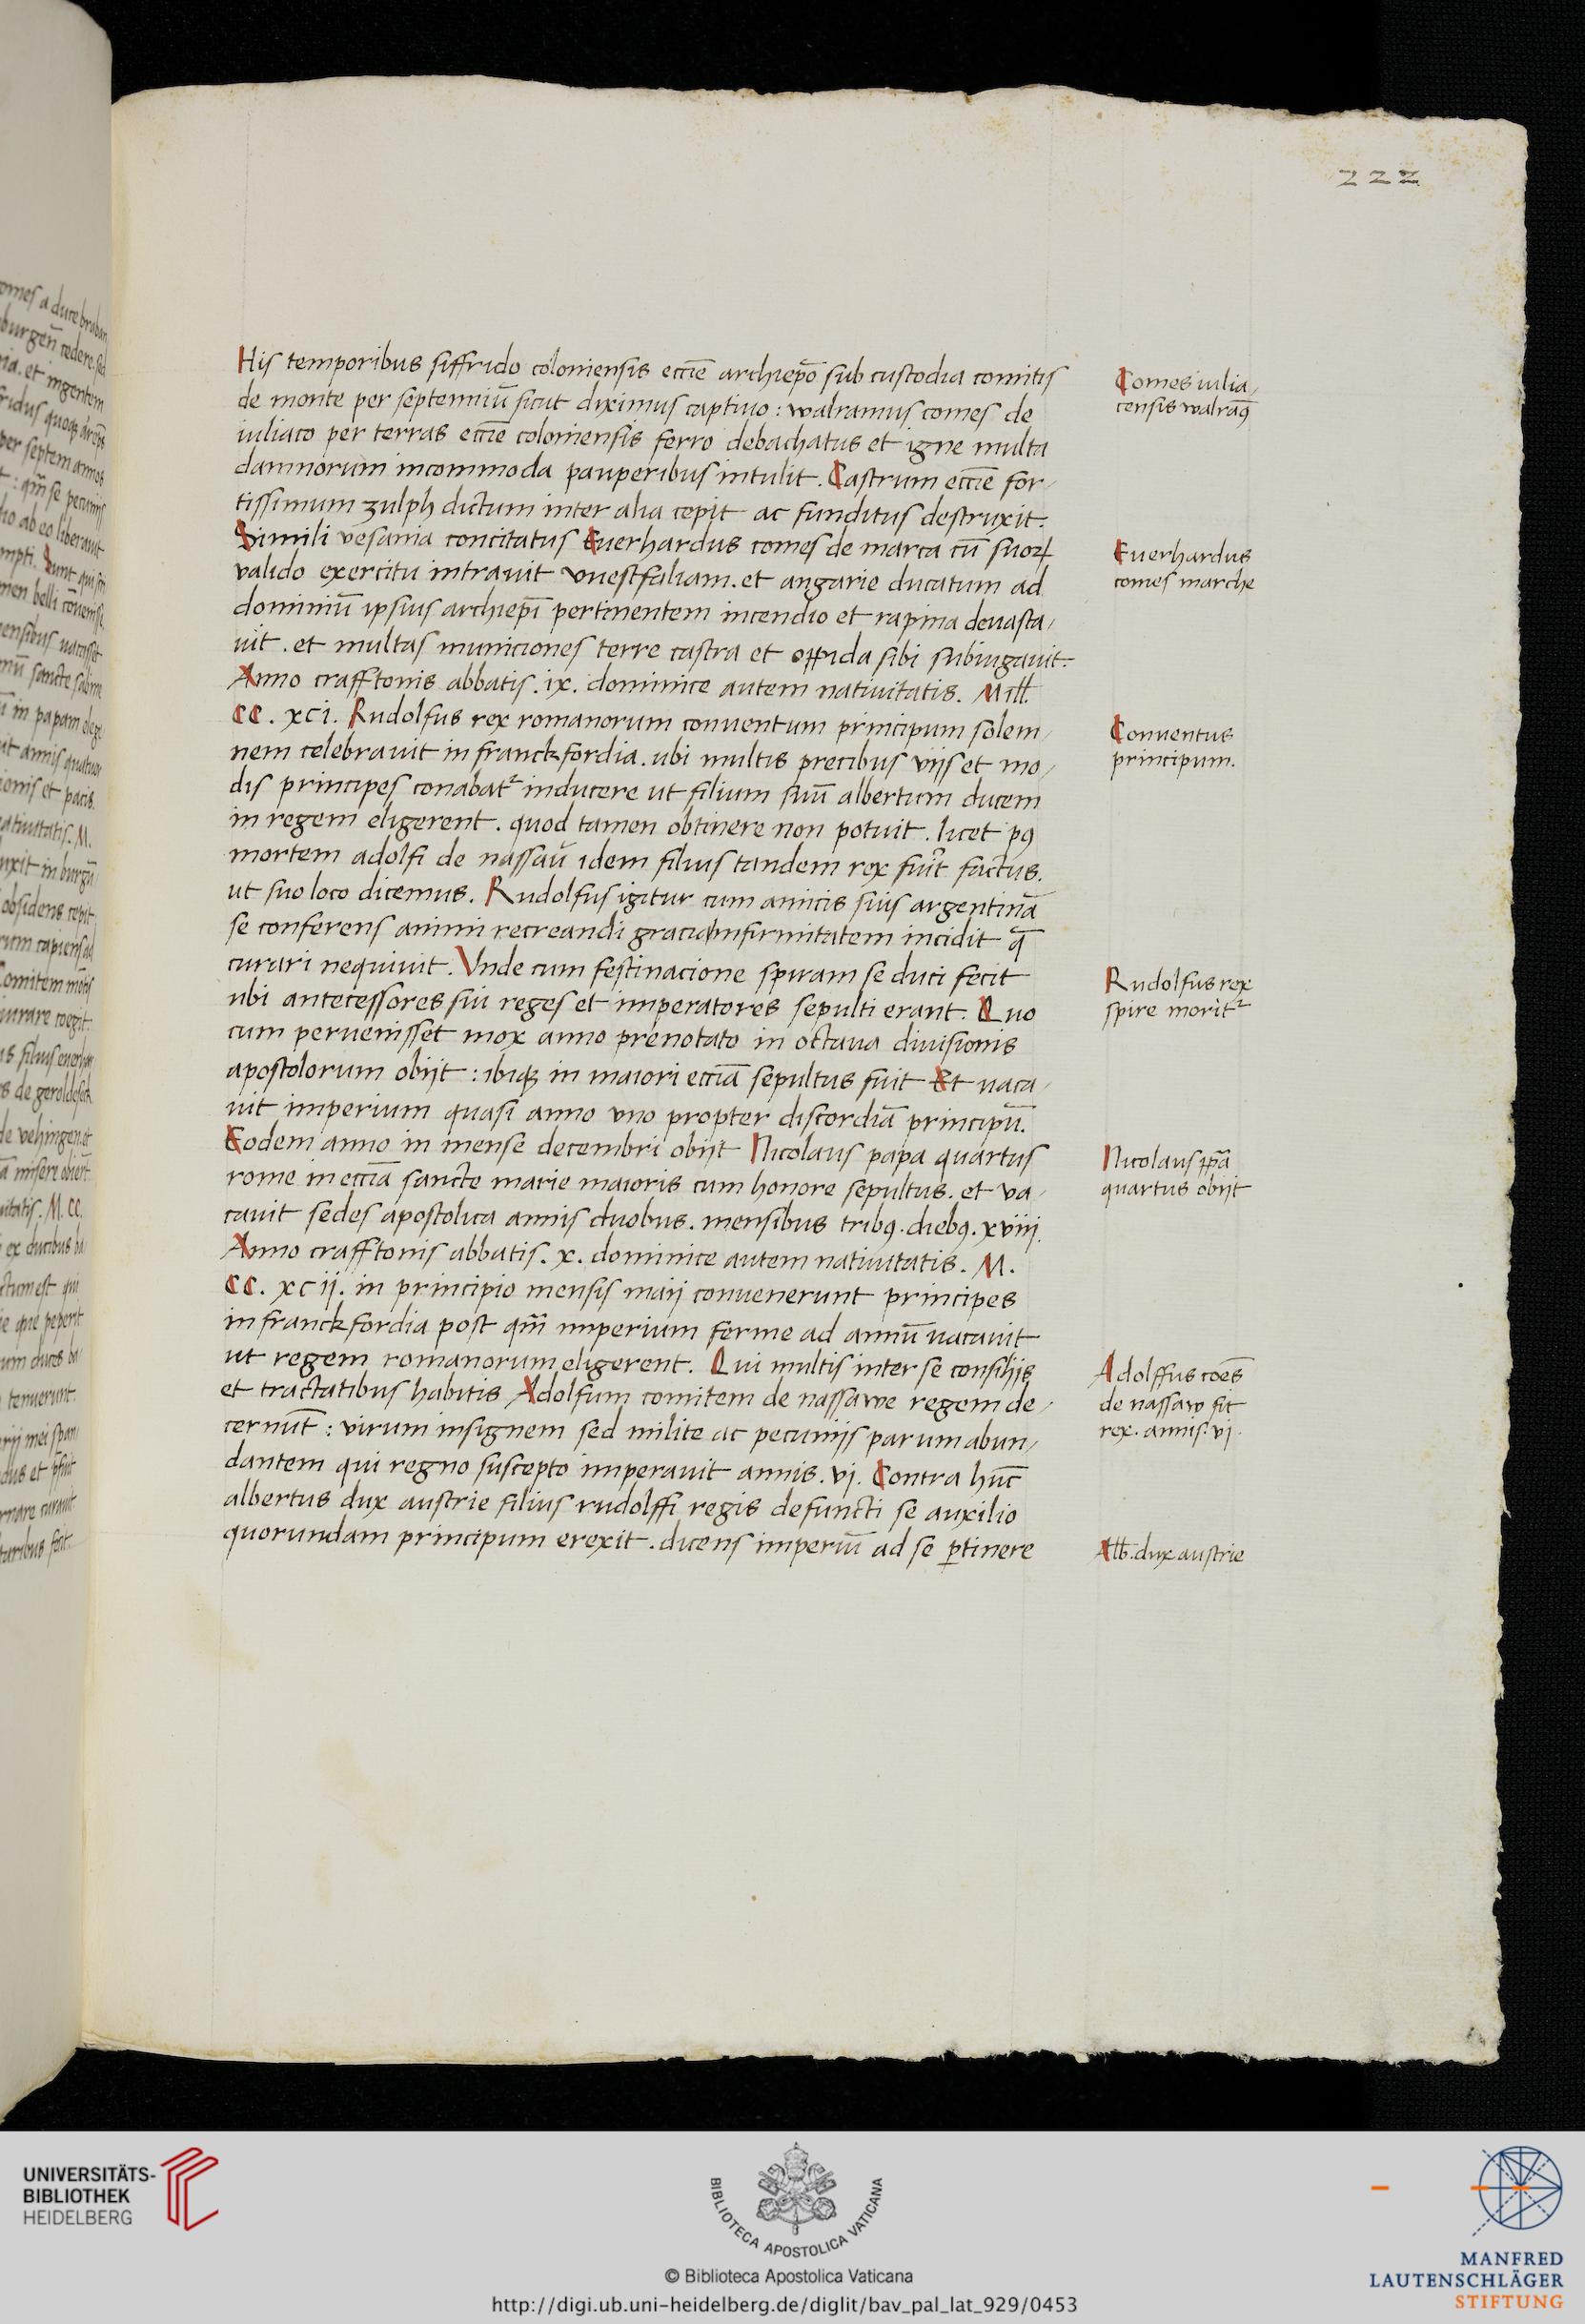 222
His temporibus siffrido coloniensis eccl̄e archiepō sub custodia comitis
de monte per septenniū sicut diximus captiuo : walramus comes de
iuliaco per terras eccl̄e coloniensis ferro debachatus et igne multa
damnorum incommoda pauperibus intulit. Castrum eccl̄e for-
tissimum zulph dictum inter alia cepit ac funditus destruxit.
Simili vesania concitatus Euerhardus comes de marca cū suoꝝ
valido exercitu intrauit vuestfaliam. et angarie ducatum ad
dominiū ipsius archiepī pertinentem incendio et rapina deuasta-
uit. et multas municiones terre castra et oppida sibi subiugauit.
Anno crafftonis abbatis. ix. dominice autem natiuitatis. Mill̄.
CC. xci. Rudolfus rex romanorum conuentum principum solem-
nem celebrauit in franckfordia. ubi multis precibus viis et mo-
dis principes conabat᷑ inducere ut filium suū albertum ducem
in regem eligerent. quod tamen obtinere non potuit. licet pꝰ
mortem adolfi de nassau idem filius tandem rex fuit factus.
ut suo loco dicemus. Rudolfus igitur cum amicis suis argentinā
se conferens animi recreandi gracia infirmitatem incidit q̄
curari nequiuit. Vnde cum festinacione spiram se duci fecit
ubi antecessores sui reges et imperatores sepulti erant. Quo
cum peruenisset mox anno prenotato in octaua diuisionis
apostolorum obijt : ibiqꝫ in maiori eccīa sepultus fuit Et uaca-
uit imperium quasi anno uno propter discordiā principū.
Eodem anno in mense decembri obijt Nicolaus papa quartus
rome in eccīa sancte marie maioris cum honore sepultus. et va-
cauit sedes apostolica annis duobus. mensibus tribꝰ. diebꝰ. xviij.
Anno crafftonis abbatis. x. dominice autem natiuitatis. M.
CC. xcij. in principio mensis maij conuenerunt principes
in franckfordia post qm̄ imperium ferme ad annū uacauit
ut regem romanorum eligerent. Qui multis inter se consilijs
et tractatibus habitis Adolfum comitem de nassawe regem de-
cernūt : virum insignem sed milite ac pecunijs parum abun-
dantem qui regno suscepto imperauit annis. vj. Contra hūc
albertus dux austrie filius rudolffi regis defuncti se auxilio
quorundam principum erexit. dicens imperiū ad se ꝑtinere
Comes iulia-
censis walraꝰ
Euerhardus
comes marche
Conuentus
principum.
Rudolfus rex
spire morit᷑
Nicolaus pp̄a
quartus obijt
Adolffus coēs
de nassaw fit
rex. annis. vj.
Alb̄. dux austrie
UNIVERSITÄTS-
BIBLIOTHEK
HEIDELBERG
BIBLIOTECA APOSTOLICA VATICANA
© Biblioteca Apostolica Vaticana
http://digi.ub.uni-heidelberg.de/diglit/bav_pal_lat_929/0453
MANFRED
LAUTENSCHLÄGER
STIFTUNG